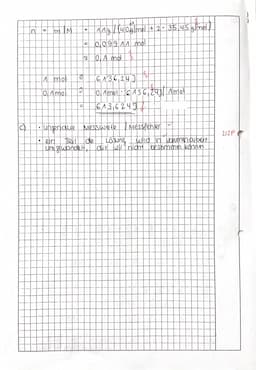 n = m/M = 11g/(40g/mol + 2·35,45g/mol)
= 0,09911 mol
≈ 0,1 mol
1 mol ≙ 6136,24J
0,1mol ≙ 0,1mol · 6136,24J/1mol
= 613,624J
c) • ungenaue Messwerte / Messfehler
• ein Teil der Lösung wird in
umgewandelt, die wir nicht bestimmen können